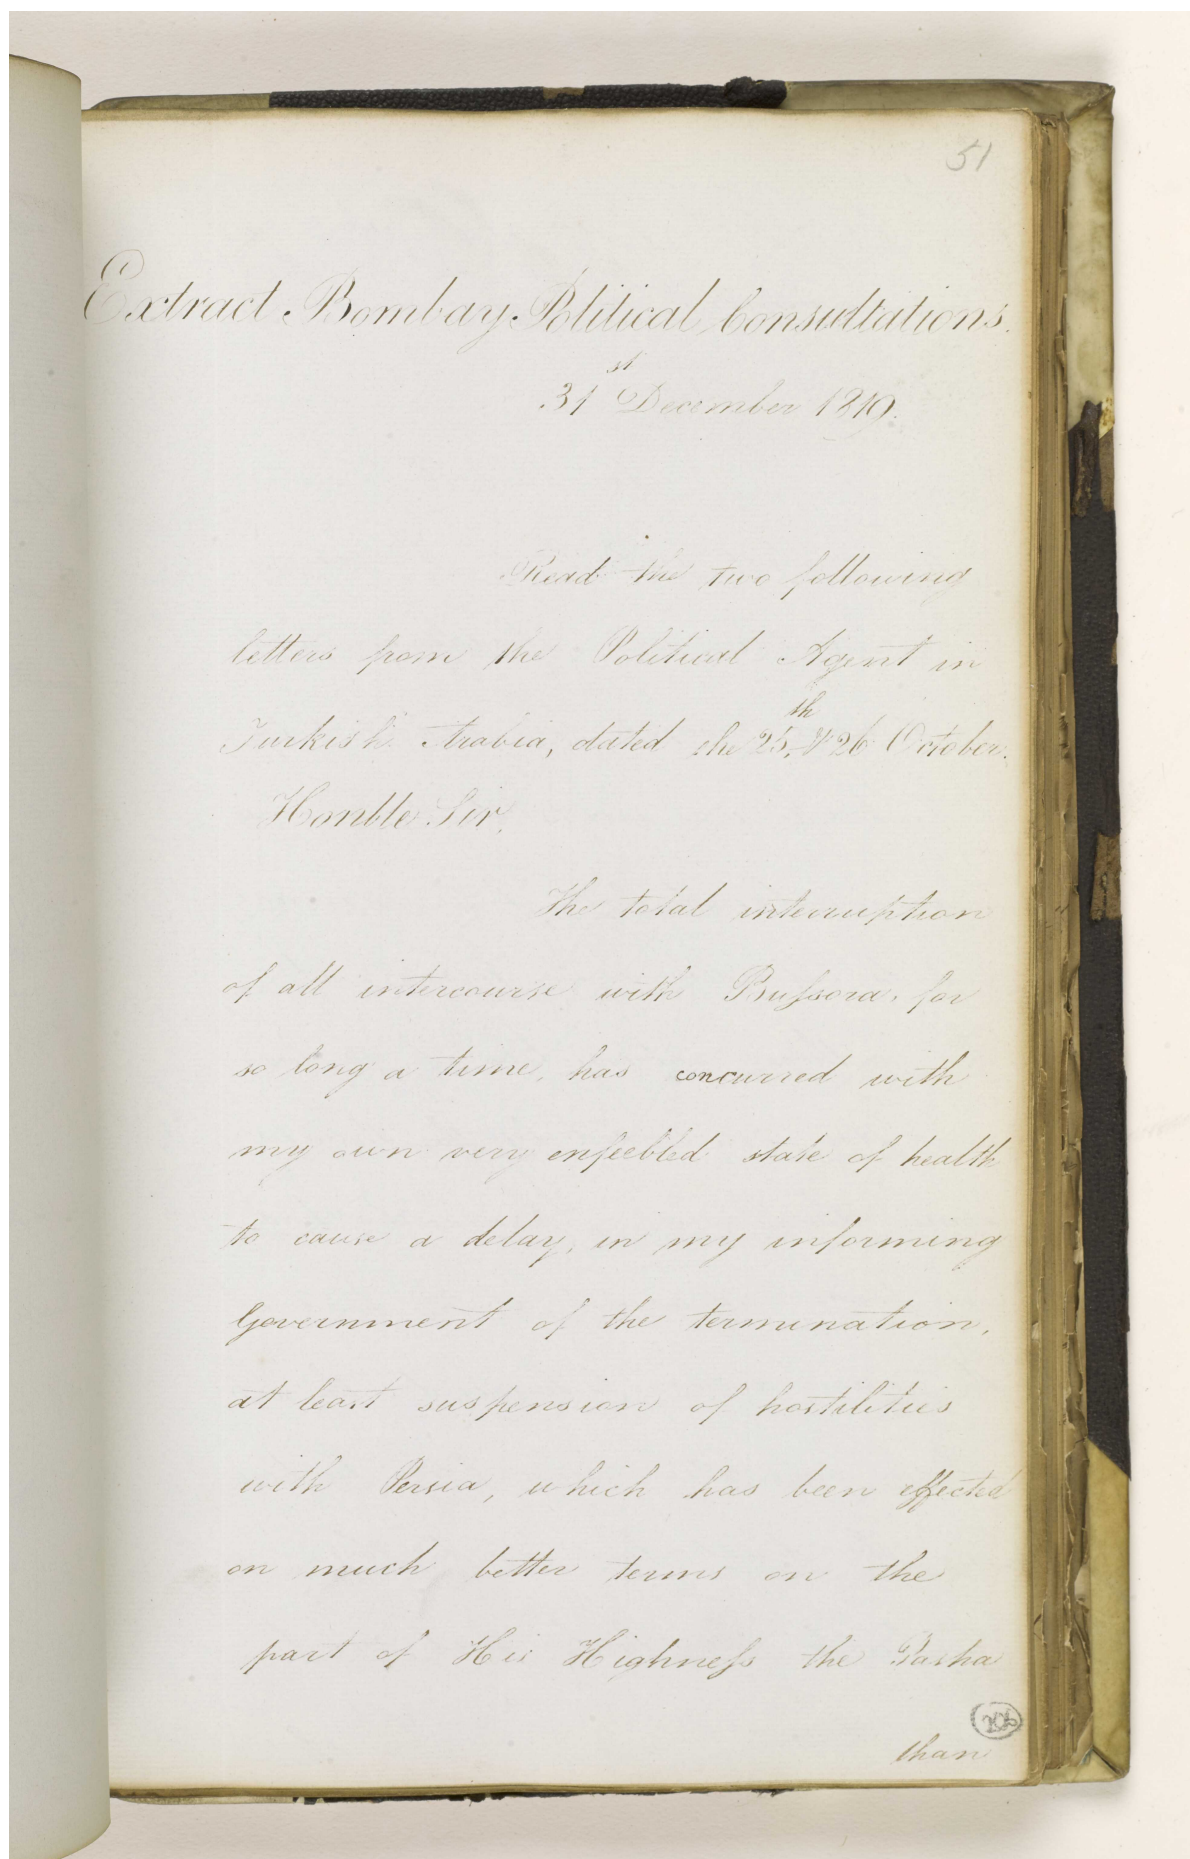 51
Extract Bombay Political Consultations.
31st December 1819.
Read the two following
letters from the Political Agent in
Turkish Arabia, dated the 25th & 26 October.
Honble Sir,
The total interruption
of all intercourse with Bussora, for
so long a time, has concurred with
my own very enfeebled state of health
to cause a delay, in my informing
Government of the termination,
at least suspension of hostilities
with Persia, which has been effected
on much better terms on the
part of His Highness the Pasha
than